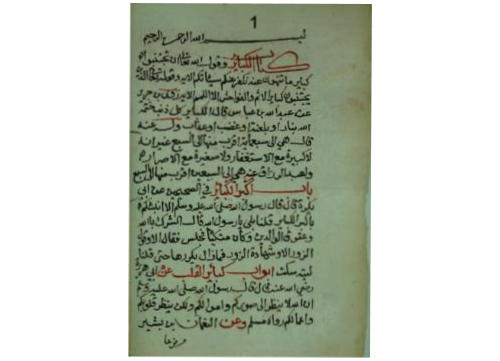 1
بسم الله الرحمن الرحيم
كتاب الكبائر وقول الله تعالى ان تجتنبوا
كبائر ما تنهون عنه نكفر عنكم سيئاتكم الاية وقوله تعالى الذين
يجتنبون كبائر الاثم والفواحش الا اللمم الاية روى بن جرير
عن عبد الله بن عباس قال الكبائر كل ذنب ختمه
الله بنار او لعنة او غضب او عذاب وله عنه
قال هي الى سبعماية اقرب منها الى السبع غير انه
لا كبيرة مع الاستغفار ولا صغيرة مع الاصرار
ولعبد الرزاق عنه هي الى السبعين اقرب منها الى السبع
باب اكبر الكبائر في الصحيحين عن ابي
بكرة قال قال رسول الله صلى الله عليه وسلم الا انبئكم
باكبر الكبائر قلنا بلى يا رسول الله قال الاشراك بالله
وعقوق الوالدين وكان متكئا فجلس فقال الا وقول
الزور الا وشهادة الزور فما زال يكررها حتى قلنا
ليته سكت ابواب كبائر القلب عن ابي هريرة
رضي الله عنه قال قال رسول الله صلى الله عليه وسلم
ان الله لا ينظر الى صوركم واموالكم ولكن ينظر الى قلوبكم
واعمالكم رواه مسلم وعن النعمان بن بشير